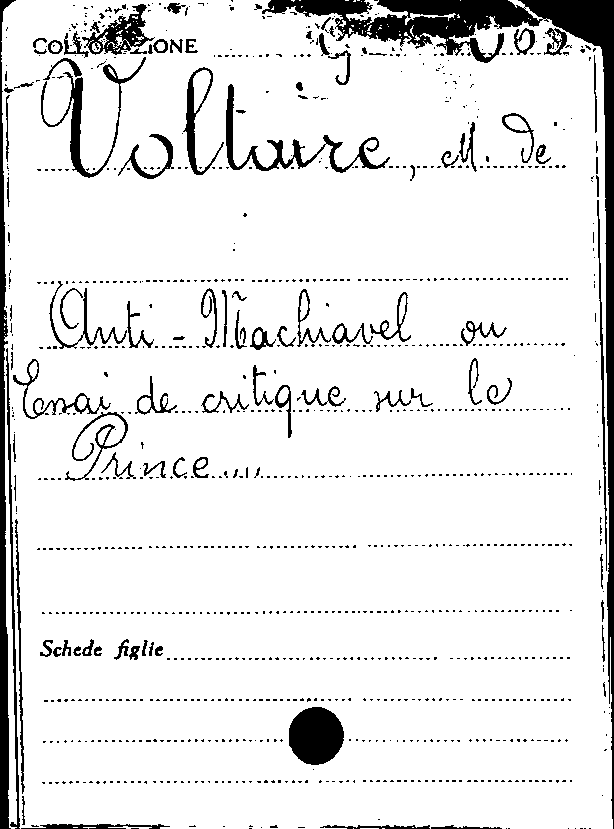 COLLOCAZIONE G.
Voltaire, M. de
Anti-Machiavel ou
Essai de critique sur le
Prince....
Schede figlie